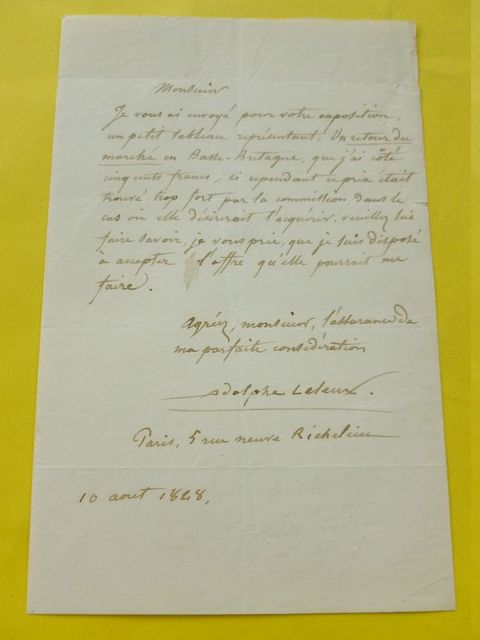 Monsieur
Je vous ai envoyé pour votre exposition,
un petit tableau représentant, Un retour du
marché en Basse-Bretagne, que j'ai côté
cinq cents francs; si cependant ce prix était
trouvé trop fort par la commission dans le
cas où elle désirerait l'acquérir, veuillez lui
faire savoir, je vous prie, que je suis disposé
à accepter l'offre qu'elle pourrait me
faire.
Agréez, monsieur, l'assurance de
ma parfaite considération
Adolphe Leleux.
Paris, 5 rue neuve Richelieu
10 aout 1848.